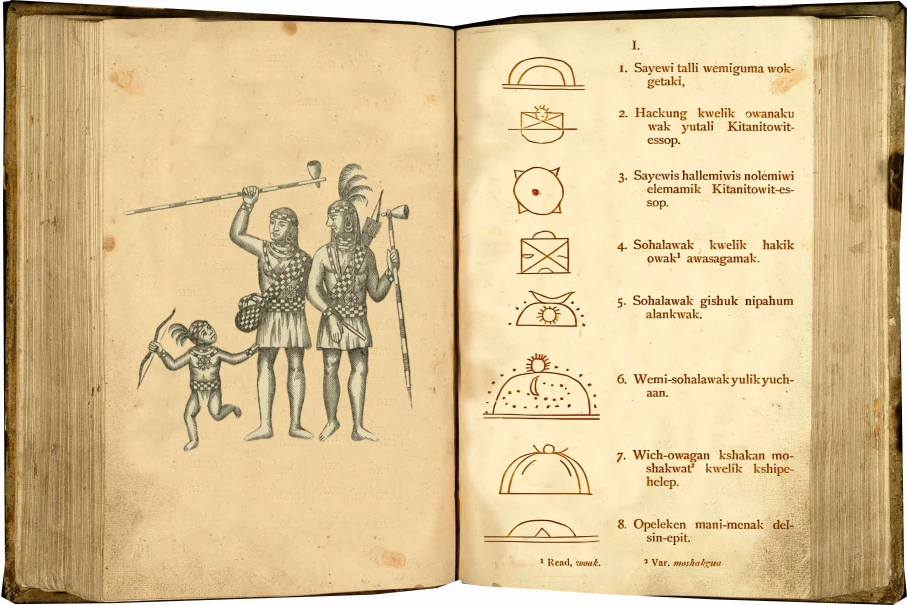 I.
1. Sayewi talli wemiguma wok-
getaki,
2. Hackung kwelik owanaku
wak yutali Kitanitowit-
essop.
3. Sayewis hallemiwis nolemiwi
elemamik Kitanitowit-es-
sop.
4. Sohalawak kwelik hakik
owak¹ awasagamak.
5. Sohalawak gishuk nipahum
alankwak.
6. Wemi-sohalawak yulik yuch-
aan.
7. Wich-owagan kshakan mo-
shakwat² kwelik kshipe-
helep.
8. Opeleken mani-menak del-
sin-epit.
¹ Read, woak. ² Var. moshakgua